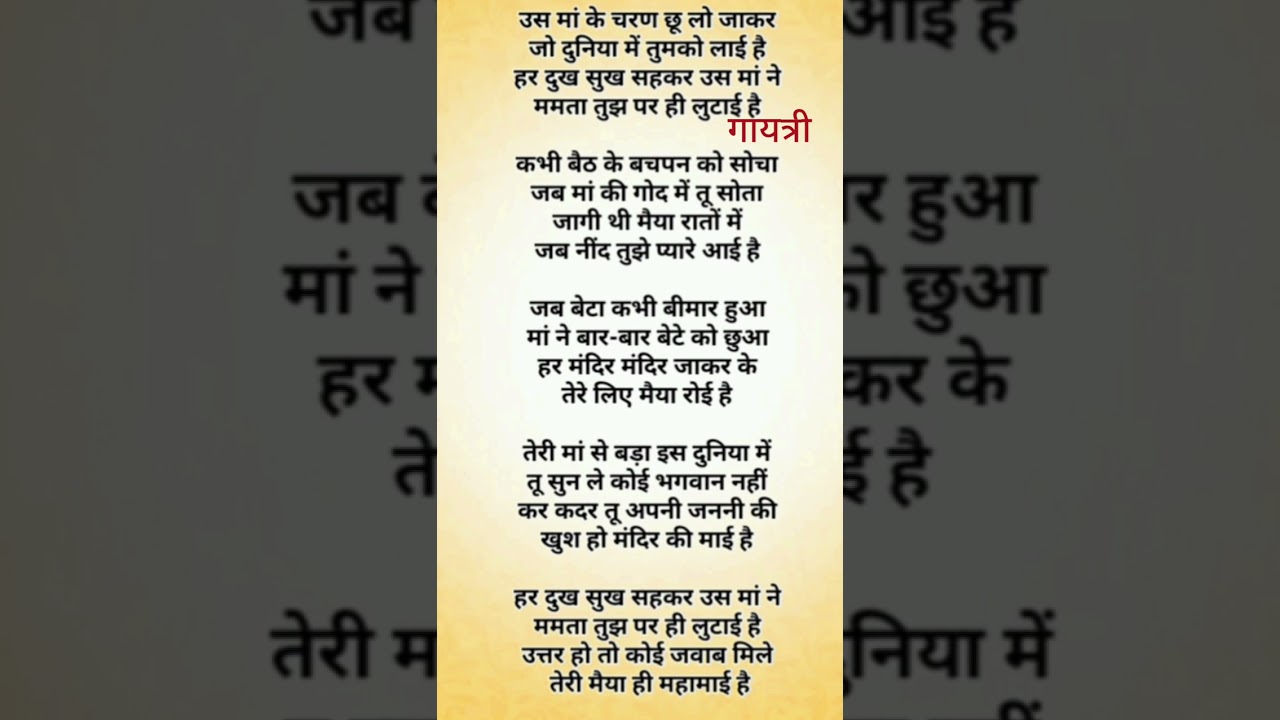 उस मां के चरण छू लो जाकर
जो दुनिया में तुमको लाई है
हर दुख सुख सहकर उस मां ने
ममता तुझ पर ही लुटाई है
गायत्री
कभी बैठ के बचपन को सोचा
जब मां की गोद में तू सोता
जागी थी मैया रातों में
जब नींद तुझे प्यारे आई है
जब बेटा कभी बीमार हुआ
मां ने बार-बार बेटे को छुआ
हर मंदिर मंदिर जाकर के
तेरे लिए मैया रोई है
तेरी मां से बड़ा इस दुनिया में
तू सुन ले कोई भगवान नहीं
कर कदर तू अपनी जननी की
खुश हो मंदिर की माई है
हर दुख सुख सहकर उस मां ने
ममता तुझ पर ही लुटाई है
उत्तर हो तो कोई जवाब मिले
तेरी मैया ही महामाई है